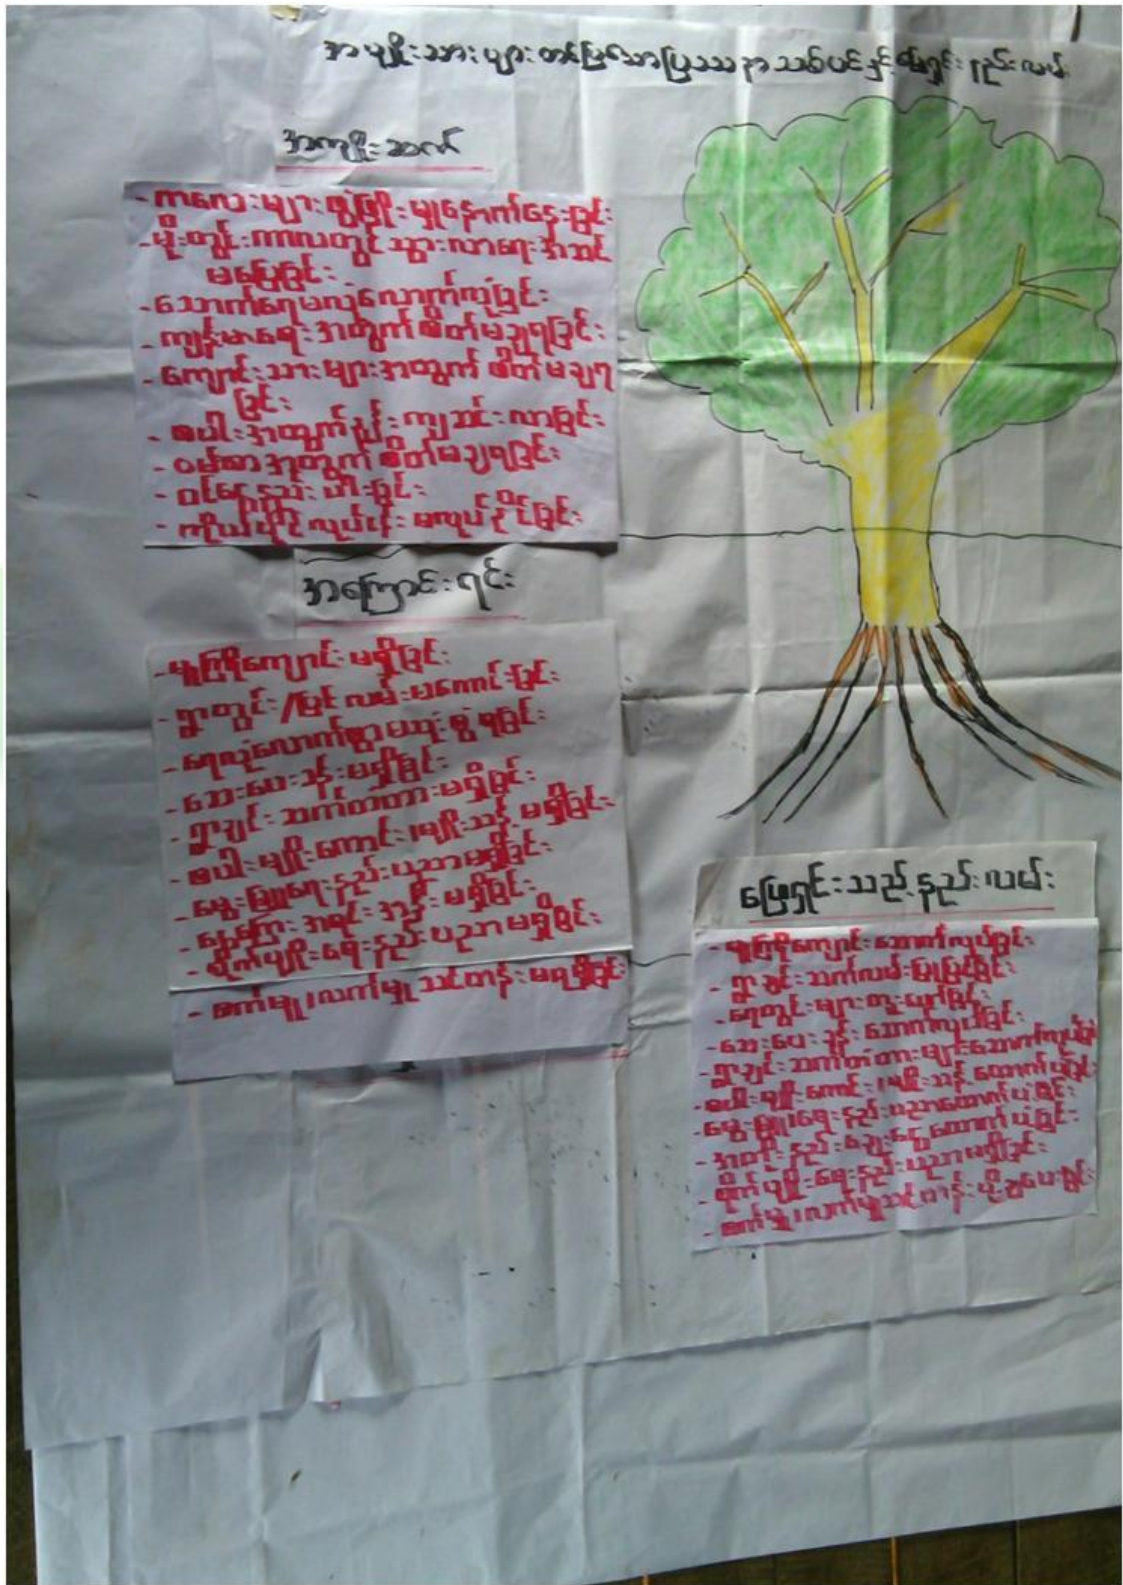 အမျိုးသားများ တင်ပြသောပြဿနာသစ်ပင်နှင့် ဖြေရှင်းနည်းလမ်း
အကျိုးဆက်
- ကလေးများ ဖွံ့ဖြိုးမှုနှောက်နှေးခြင်း
- မိုးတွင်းကာလတွင် သွားလာရေး အဆင်
မပြေခြင်း
- သောက်ရေမလုံလောက်ခြင်း
- ကျန်းမာရေးအတွက် စိတ်မချရခြင်း
- ကျောင်းသားများအတွက် စိတ်မချရ
ခြင်း
- စပါးအထွက်နှုန်းကျဆင်းလာခြင်း
- ဝမ်းစာအတွက် စိတ်မချရခြင်း
- ဝင်ငွေနည်းပါးခြင်း
- ကိုယ်ပိုင်လုပ်ငန်း မလုပ်နိုင်ခြင်း
အကြောင်းရင်း
- မူကြိုကျောင်း မရှိခြင်း
- ရွာတွင်း/ပြင် လမ်းမကောင်းခြင်း
- ရေလုံလောက်စွာ မသုံးစွဲရခြင်း
- ဆေးပေးခန်းမရှိခြင်း
- ရွာချင်းဆက်တံတားမရှိခြင်း
- စပါးမျိုးကောင်း၊မျိုးသန့် မရှိခြင်း
- မွေးမြူရေးနည်းပညာမရှိခြင်း
- ငွေကြေးအရင်းအနှီးမရှိခြင်း
- စိုက်ပျိုးရေးနည်းပညာမရှိခြင်း
- စက်မှု၊လက်မှု သင်တန်းမရရှိခြင်း
ဖြေရှင်းသည့်နည်းလမ်း
- မူကြိုကျောင်းဆောက်လုပ်ခြင်း
- ရွာချင်းဆက်လမ်းပြုပြင်ခြင်း
- ရေတွင်းများတူးဖော်ခြင်း
- ဆေးပေးခန်းဆောက်လုပ်ခြင်း
- ရွာချင်းဆက်တံတားများဆောက်လုပ်ခြင်း
- စပါးမျိုးကောင်း၊မျိုးသန့်ထောက်ပံ့ခြင်း
- မွေးမြူရေးနည်းပညာထောက်ပံ့ခြင်း
- အတိုးနည်းချေးငွေထောက်ပံ့ခြင်း
- စိုက်ပျိုးရေးနည်းပညာမရှိခြင်း
- စက်မှု၊လက်မှုသင်တန်းပို့ချပေးခြင်း